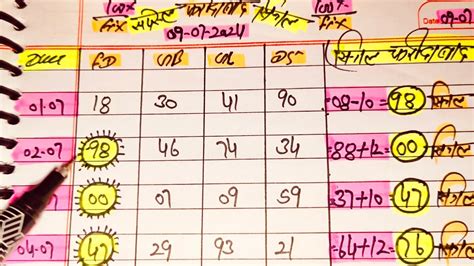 100% सिंगल फरीदाबाद सिंगल 100%
fix 09-07-2024 fix Date 09-07
FD GB GL DS सिंगल फरीदाबाद
01-07 18 30 41 90 = 08-10 = 98 सिंगल
02-07 98 46 74 34 = 88+12 = 00 सिंगल
00 07 09 59 = 37+10 = 47 सिंगल
04-07 47 29 93 21 = 64+12 = 76 सिंगल